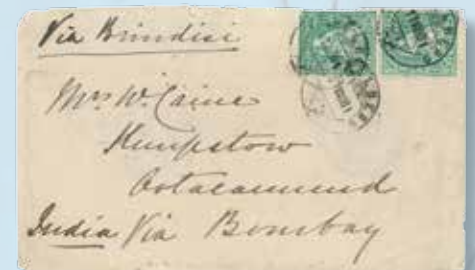 Via Brindisi
Mrs W. Caine
Kempstow
Ootacamund
India Via Bombay